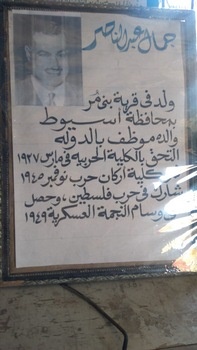 جمال عبد الناصر
ولد فى قرية بنى مُر
بمحافظة أسيوط
والده موظف بالدوله
التحق بالكلية الحربيه فى مارس ١٩٢٧
كلية أركان حرب نوفمبر ١٩٤٥
شارك فى حرب فلسطين ، وحصل
وسام النجمة العسكرية ١٩٤٩